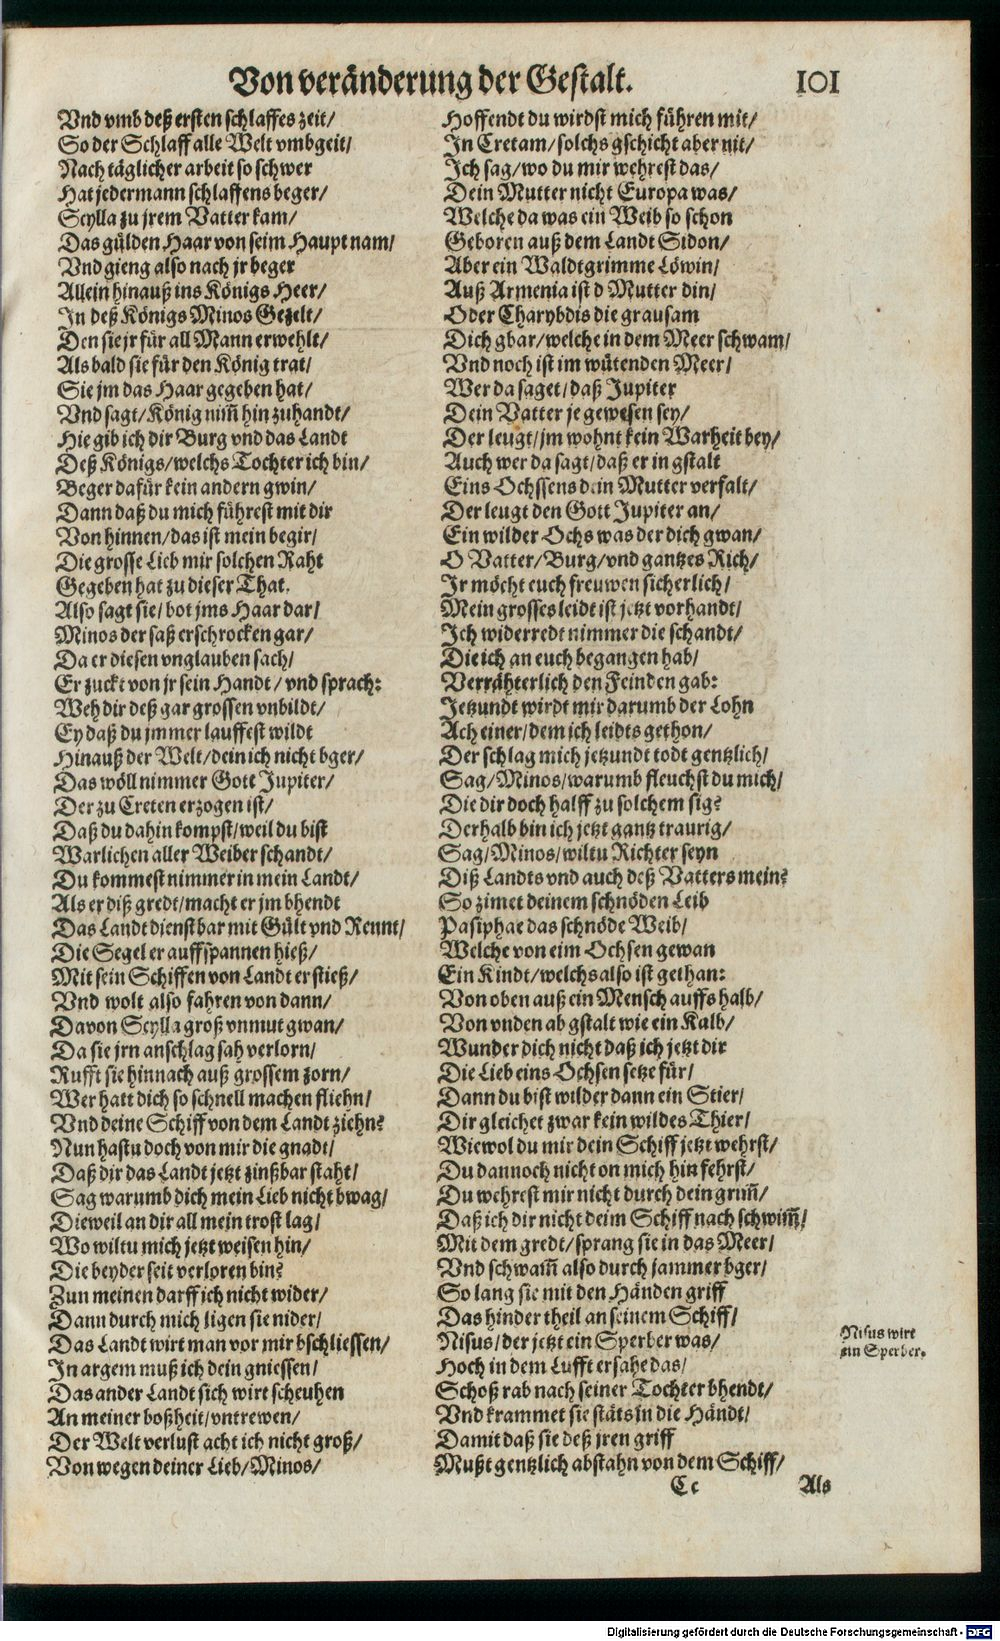 Von veränderung der Gestalt. 101
Vnd vmb deß ersten schlaffes zeit/
So der Schlaff alle Welt vmbgeit/
Nach täglicher arbeit so schwer
Hat jedermann schlaffens beger/
Scylla zu jrem Vatter kam/
Das gülden Haar von seim Haupt nam/
Vnd gieng also nach jr beger
Allein hinauß ins Königs Heer/
In deß Königs Minos Gezelt/
Den sie jr für all Mann erwehlt/
Als bald sie für den König trat/
Sie jm das Haar gegeben hat/
Vnd sagt/König nim̃ hin zuhandt/
Hie gib ich dir Burg vnd das Landt
Deß Königs/welchs Tochter ich bin/
Beger dafür kein andern gwin/
Dann daß du mich führest mit dir
Von hinnen/das ist mein begir/
Die grosse Lieb mir solchen Raht
Gegeben hat zu dieser That.
Also sagt sie/bot jms Haar dar/
Minos der saß erschrocken gar/
Da er diesen vnglauben sach/
Er zuckt von jr sein Handt/vnd sprach:
Weh dir deß gar grossen vnbildt/
Ey daß du jmmer lauffest wildt
Hinauß der Welt/dein ich nicht bger/
Das wöll nimmer Gott Jupiter/
Der zu Creten erzogen ist/
Daß du dahin kompst/weil du bist
Warlichen aller Weiber schandt/
Du kommest nimmer in mein Landt/
Als er diß gredt/macht er jm bhendt
Das Landt dienstbar mit Gült vnd Rennt/
Die Segel er auffspannen hieß/
Mit sein Schiffen von Landt er stieß/
Vnd wolt also fahren von dann/
Davon Scylla groß vnmut gwan/
Da sie jrn anschlag sah verlorn/
Rufft sie hinnach auß grossem zorn/
Wer hatt dich so schnell machen fliehn/
Vnd deine Schiff von dem Landt ziehn?
Nun hastu doch von mir die gnadt/
Daß dir das Landt jetzt zinßbar staht/
Sag warumb dich mein Lieb nicht bwag/
Dieweil an dir all mein trost lag/
Wo wiltu mich jetzt weisen hin/
Die beyder seit verloren bin?
Zun meinen darff ich nicht wider/
Dann durch mich ligen sie nider/
Das Landt wirt man vor mir bschliessen/
In argem muß ich dein gniessen/
Das ander Landt sich wirt scheuhen
An meiner boßheit/vntrewen/
Der Welt verlust acht ich nicht groß/
Von wegen deiner Lieb/Minos/
Hoffendt du wirdst mich führen mit/
In Cretam/solchs gschicht aber nit/
Ich sag/wo du mir wehrest das/
Dein Mutter nicht Europa was/
Welche da was ein Weib so schon
Geboren auß dem Landt Sidon/
Aber ein Waldtgrimme Löwin/
Auß Armenia ist d Mutter din/
Oder Charybdis die grausam
Dich gbar/welche in dem Meer schwam/
Vnd noch ist im wütenden Meer/
Wer da saget/daß Jupiter
Dein Vatter je gewesen sey/
Der leugt/jm wohnt kein Warheit bey/
Auch wer da sagt/daß er in gstalt
Eins Ochssens dein Mutter verfalt/
Der leugt den Gott Jupiter an/
Ein wilder Ochs was der dich gwan/
O Vatter/Burg/vnd gantzes Rich/
Ir möcht euch freuwen sicherlich/
Mein grosses leidt ist jetzt vorhandt/
Ich widerredt nimmer die schandt/
Die ich an euch begangen hab/
Verrähterlich den Feinden gab:
Jetzundt wirdt mir darumb der Lohn
Ach einer/dem ich leidts gethon/
Der schlag mich jetzundt todt gentzlich/
Sag/Minos/warumb fleuchst du mich/
Die dir doch halff zu solchem sig?
Derhalb bin ich jetzt gantz traurig/
Sag/Minos/wiltu Richter seyn
Diß Landts vnd auch deß Vatters mein?
So zimet deinem schnöden Leib
Pasiphae das schnöde Weib/
Welche von eim Ochsen gewan
Ein Kindt/welchs also ist gethan:
Von oben auß ein Mensch auffs halb/
Von vnden ab gstalt wie ein Kalb/
Wunder dich nicht daß ich jetzt dir
Die Lieb eins Ochsen setze für/
Dann du bist wilder dann ein Stier/
Dir gleichet zwar kein wildes Thier/
Wiewol du mir dein Schiff jetzt wehrst/
Du dannoch nicht on mich hin fehrst/
Du wehrest mir nicht durch dein grim̃/
Daß ich dir nicht deim Schiff nach schwim̃/
Mit dem gredt/sprang sie in das Meer/
Vnd schwam̃ also durch jammer bger/
So lang sie mit den Händen griff
Das hinder theil an seinem Schiff/
Nisus/der jetzt ein Sperber was/
Hoch in dem Lufft ersahe das/
Schoß rab nach seiner Tochter bhendt/
Vnd krammet sie stäts in die Händt/
Damit daß sie deß jren griff
Mußt gentzlich abstahn von dem Schiff/
Nisus wirt
ein Sperber.
Cc Als
Digitalisierung gefördert durch die Deutsche Forschungsgemeinschaft - DFG